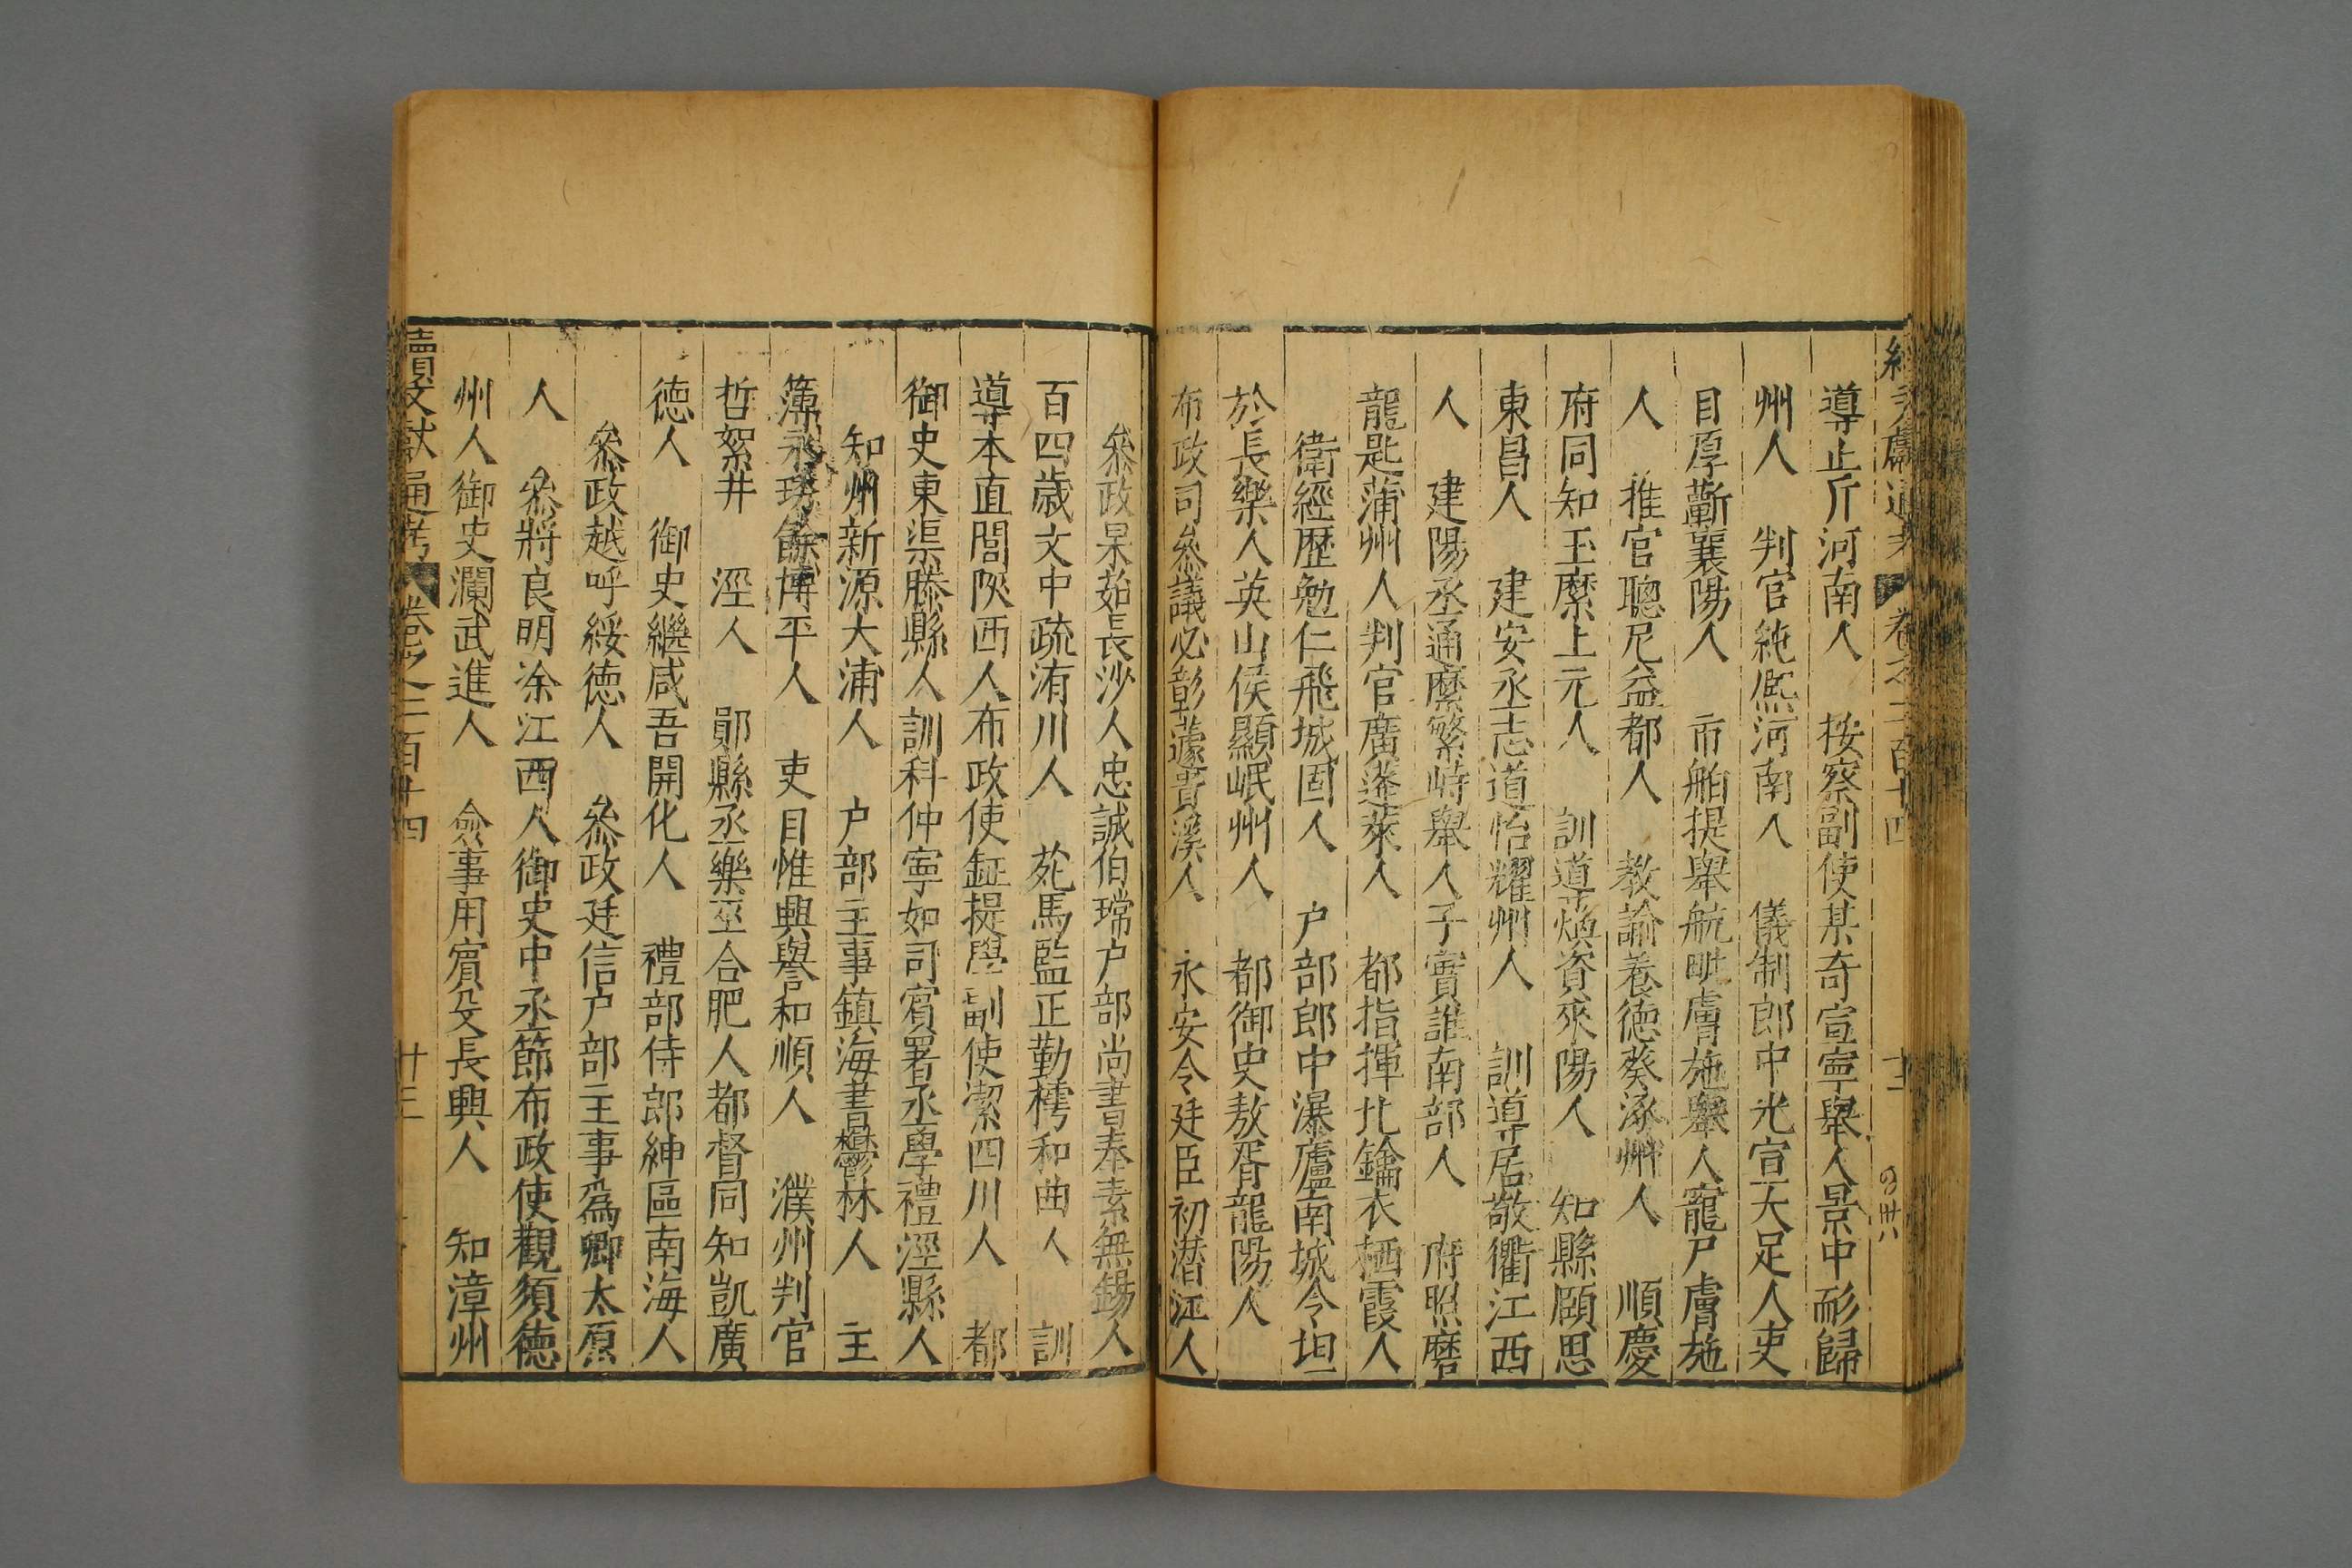 續文獻通考 卷之二百十四 十二
導止斤河南人 按察副使某奇宣寧舉人景中耏歸
州人 判官純熙河南人 儀制郎中光宣大足人吏
目厚蘄襄陽人 市舶提舉航眦膚施舉人寵尸膚施
人 推官聰尼益都人 教諭養德葵涿州人 順慶
府同知玉縻上元人 訓導煥資來陽人 知縣頤思
東昌人 建安丞志道怡耀州人 訓導居敬衢江西
人 建陽丞通縻繁峙舉人子實誰南部人 府照磨
龍匙蒲州人判官廣蓬萊人 都指揮北鑰衣栖霞人
衛經歷勉仁飛城固人 户部郎中瀑廬南城令坦
於長樂人英山侯顯岷州人 都御史敖胥龍陽人
布政司叅議必彰蘧晉溪人 永安令廷臣初潛江人
叅政杲茹長沙人忠誠伯瑺户部尚書奉素無錫人
百四歲文中疏洧川人 苑馬監正勤樗和曲人 訓
導本直閻陜西人布政使鉦提學副使潔四川人 都
御史東渠滕縣人訓科仲寧如司賓署丞學禮涇縣人
知州新源大浦人 户部主事鎮海書鬱林人 主
簿永琇餘博平人 吏目惟興譽和順人 濮州判官
哲絮井 涇人 鄖縣丞樂巫合肥人都督同知凱廣
德人 御史繼咸吾開化人 禮部侍郎紳區南海人
叅政越呼綏德人 叅政廷信户部主事爲卿太原
人 叅將良明涂江西人御史中丞節布政使觀須德
州人御史瀾武進人 僉事用賓殳長興人 知漳州
續文獻通考 卷之二百十四 廿三